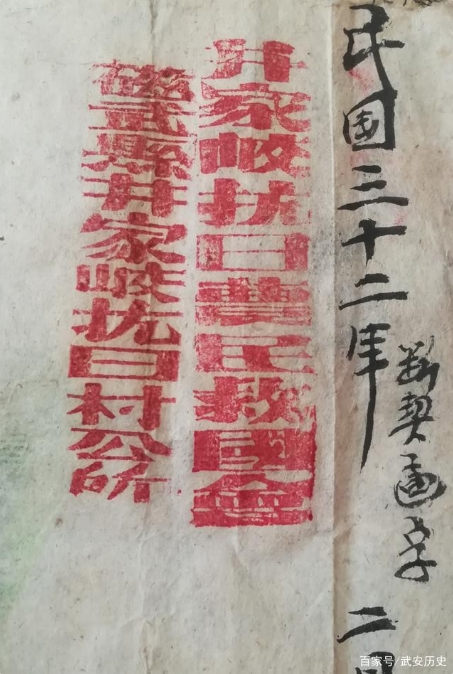 民国三十二年
断契画字
二
井家峧抗日農民救國會
磁武縣井家峧抗日村公所
百家号/武安历史